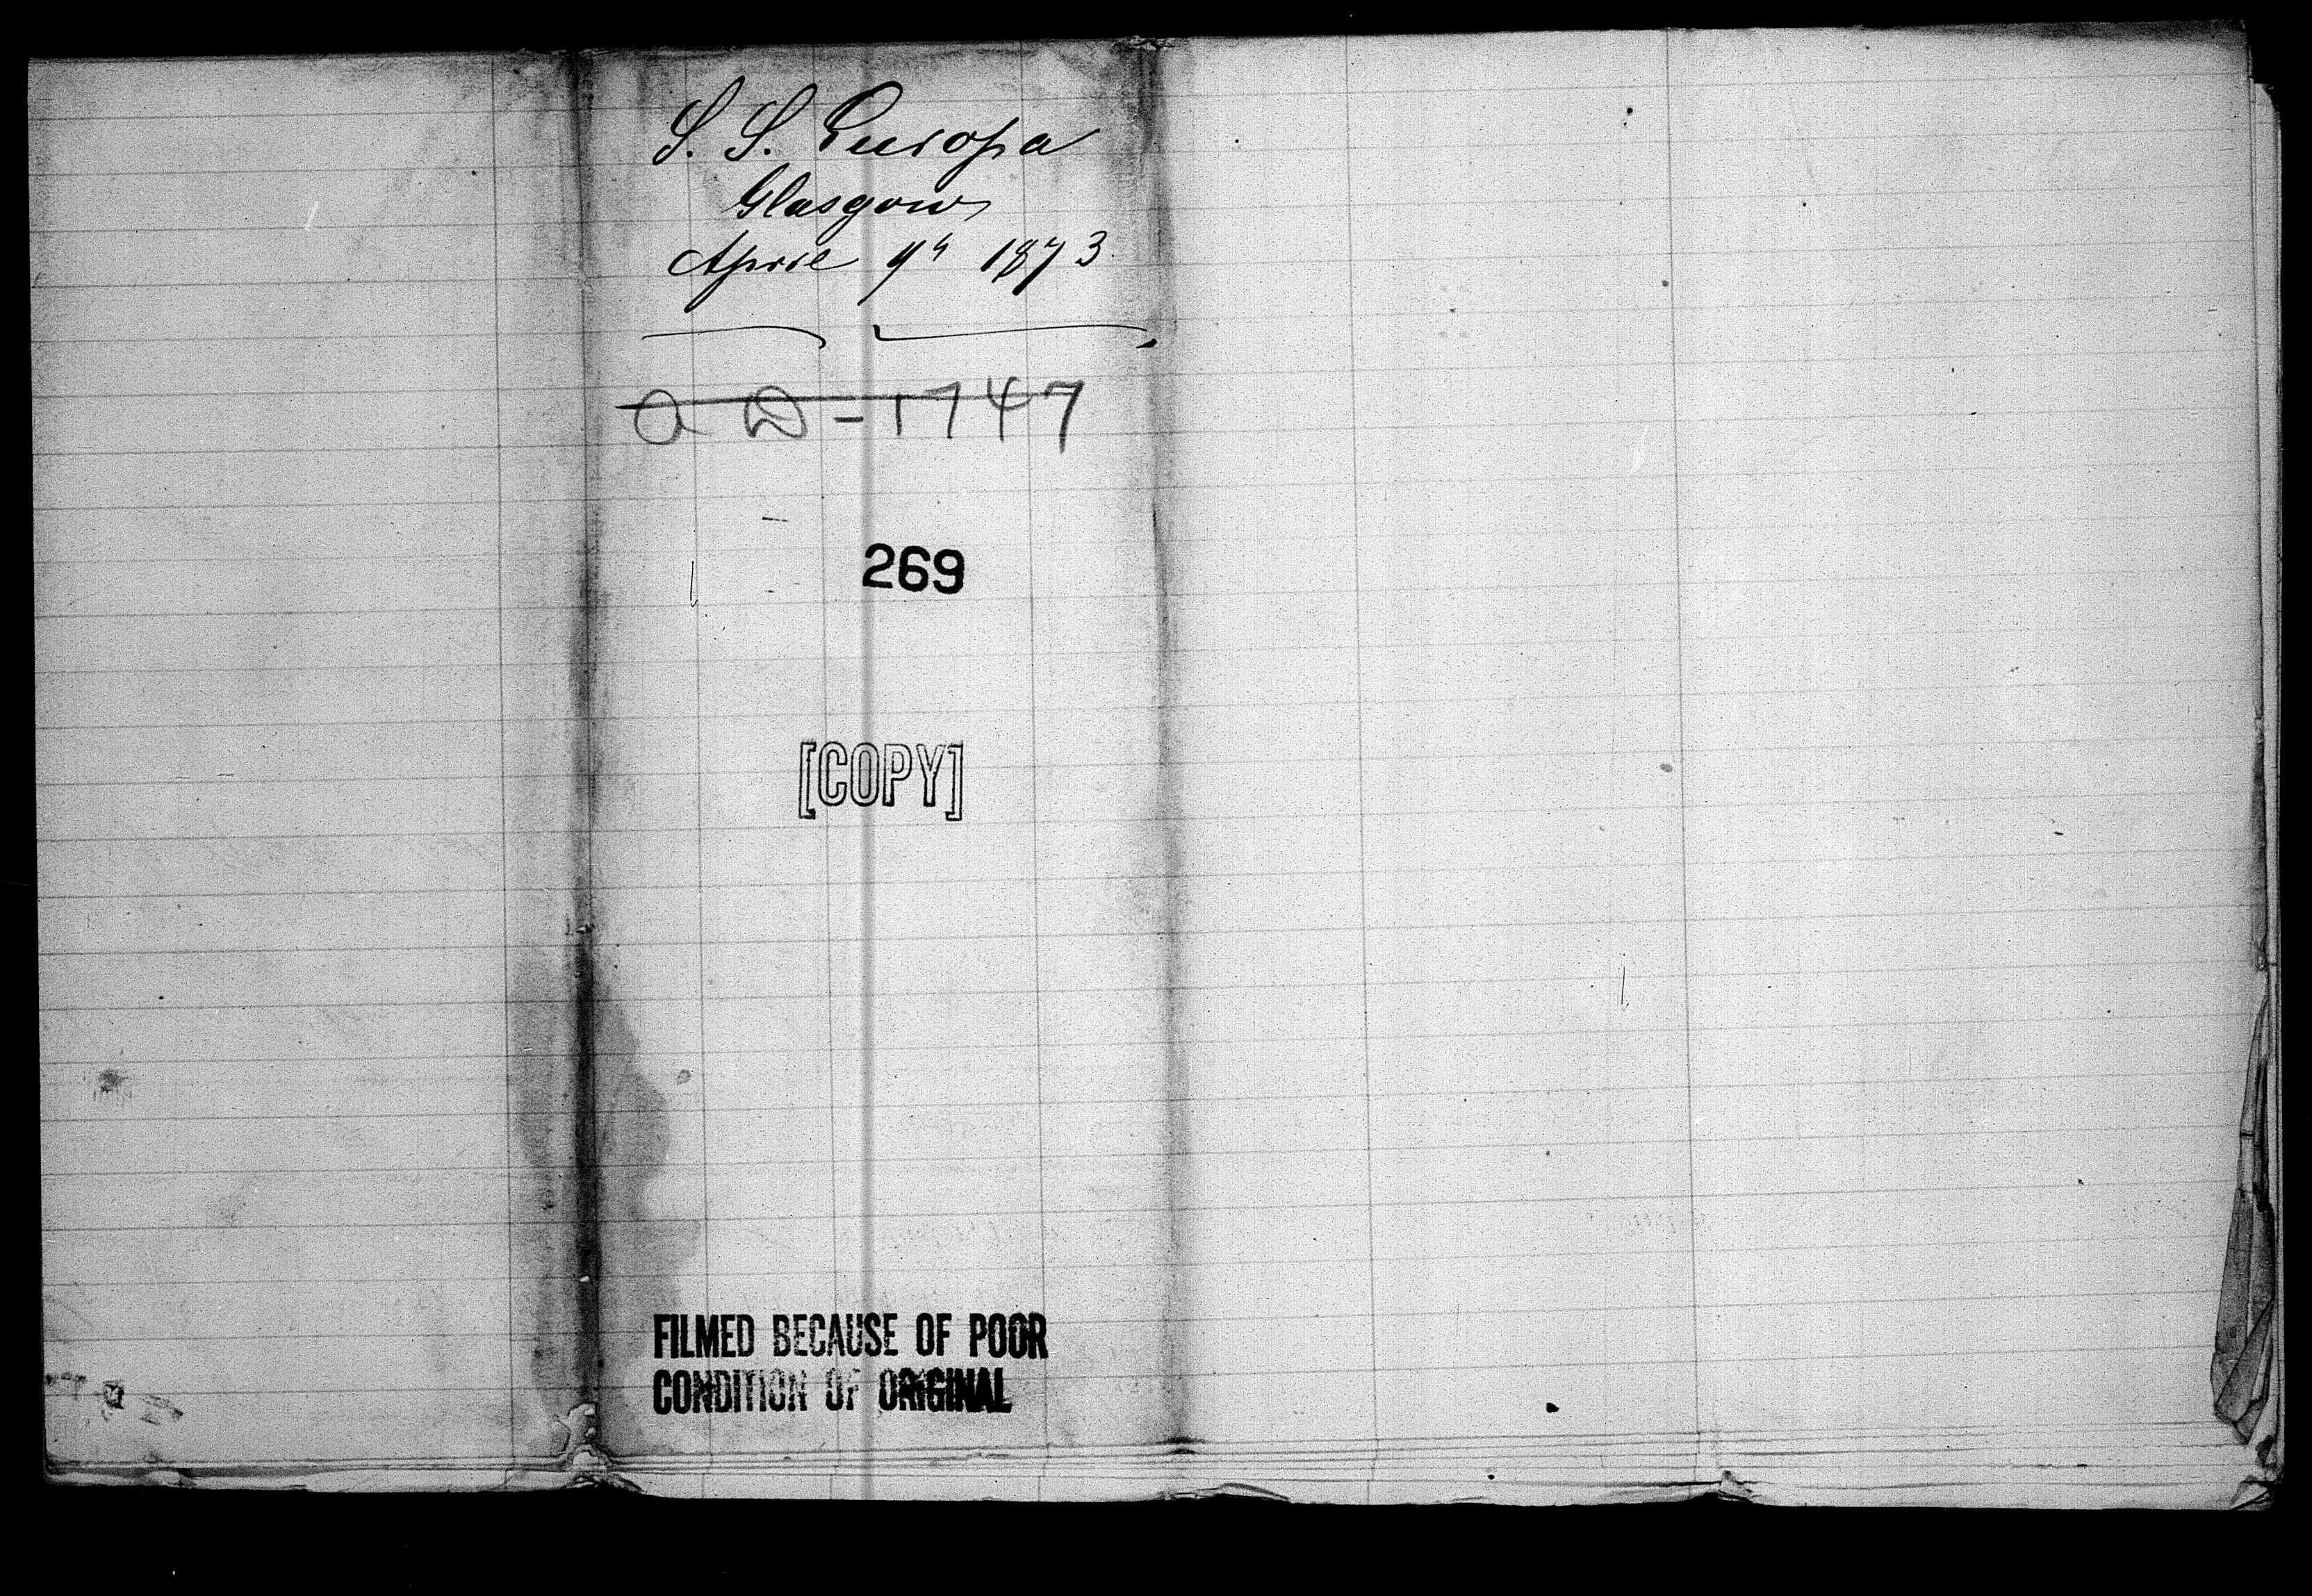 S. S. Europa
Glasgow
April 9th 1873
a D - 1747
269
[COPY]
FILMED BECAUSE OF POOR
CONDITION OF ORIGINAL